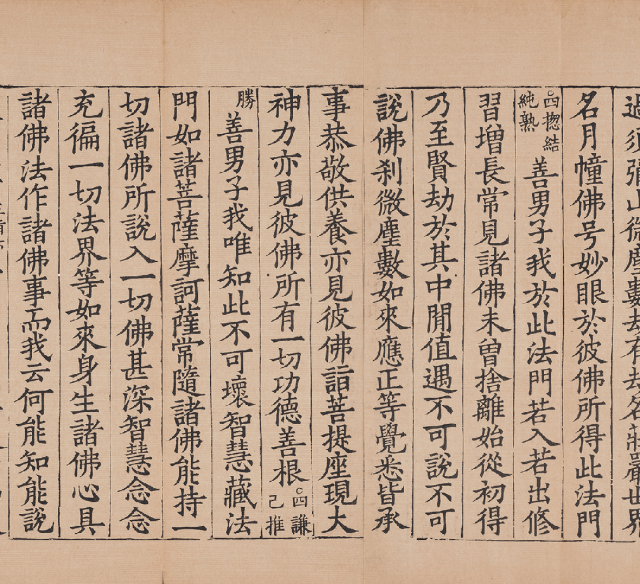 過須彌山微塵數劫有劫名莊嚴世界
名月幢佛号妙眼於彼佛所得此法門
○四揔結純熟善男子我於此法門若入若出修
習增長常見諸佛未曾捨離始從初得
乃至賢劫於其中閒值遇不可說不可
說佛刹微塵數如來應正等覺悉皆承
事恭敬供養亦見彼佛詣菩提座現大
神力亦見彼佛所有一切功德善根○四謙己推
勝善男子我唯知此不可壞智慧藏法
門如諸菩薩摩訶薩常隨諸佛能持一
切諸佛所說入一切佛甚深智慧念念
充徧一切法界等如來身生諸佛心具
諸佛法作諸佛事而我云何能知能說